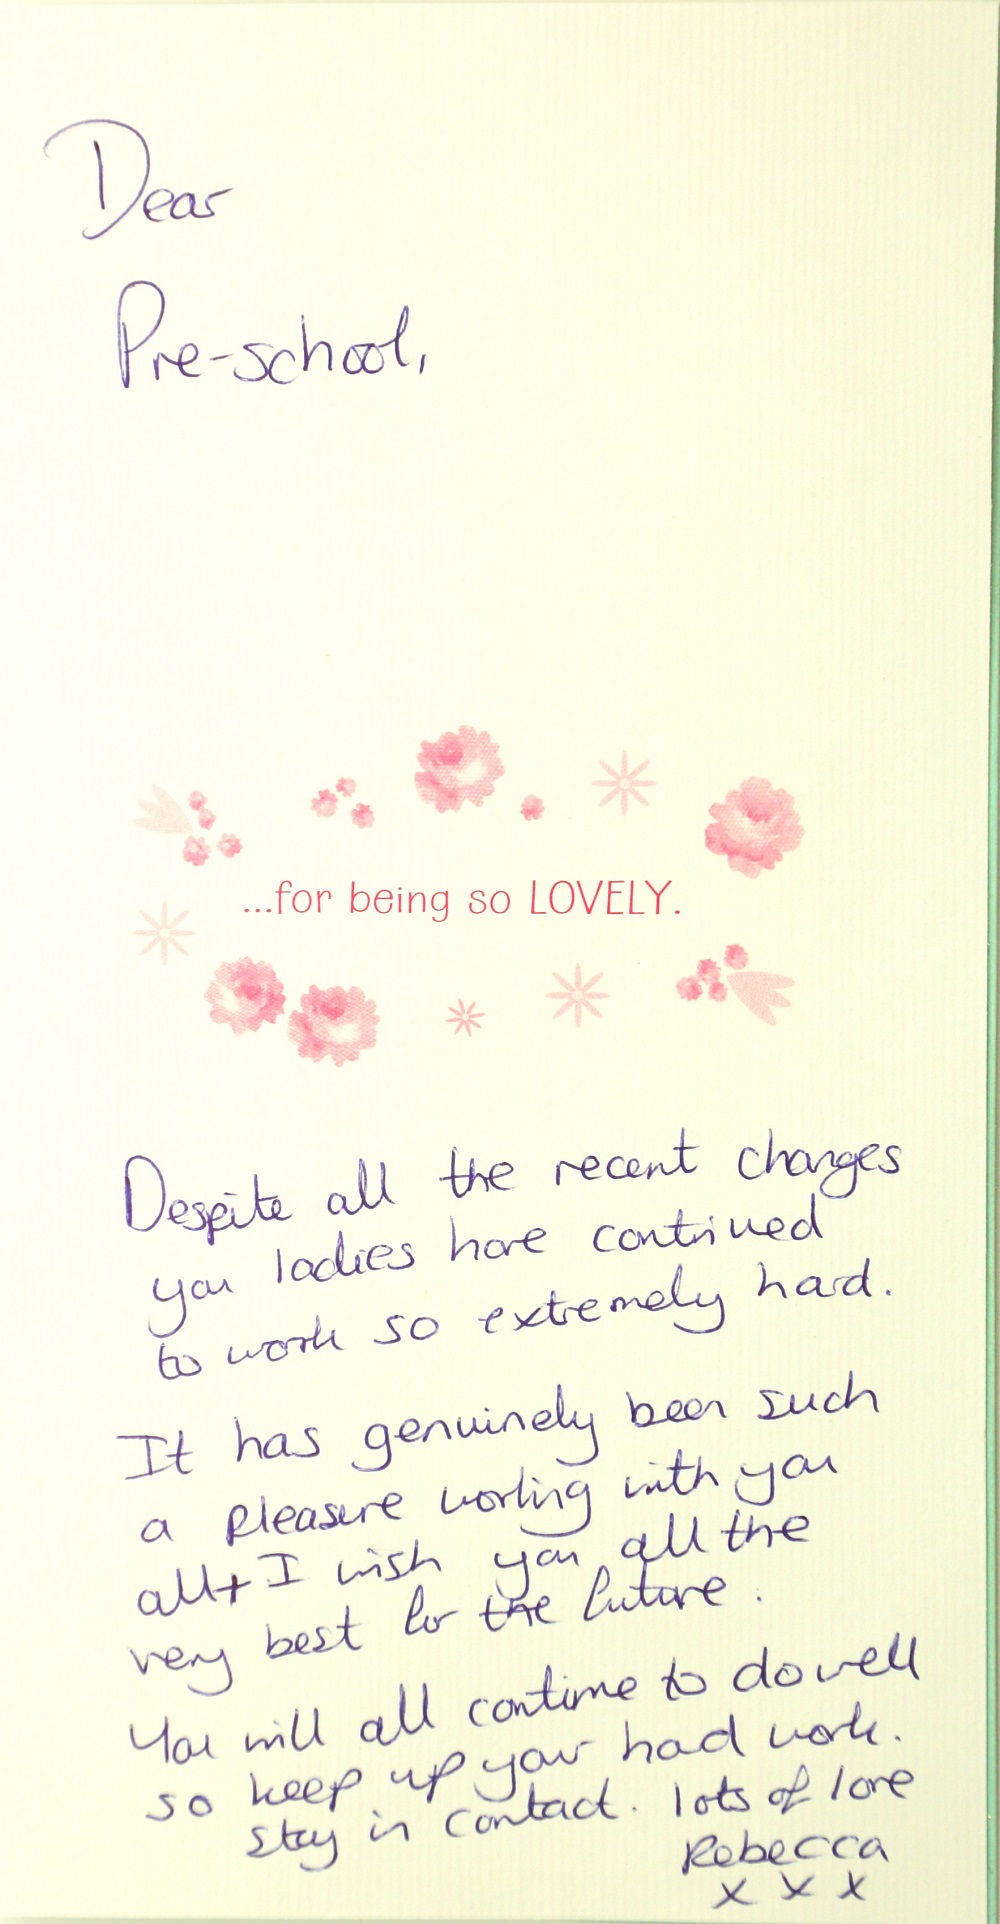 Dear
Pre-school,
...for being so LOVELY.
Despite all the recent changes
you ladies have continued
to work so extremely hard.
It has genuinely been such
a pleasure working with you
all + I wish you all the
very best for the future.
You will all continue to do well
so keep up your hard work.
Stay in contact. lots of love
Rebecca
x x x